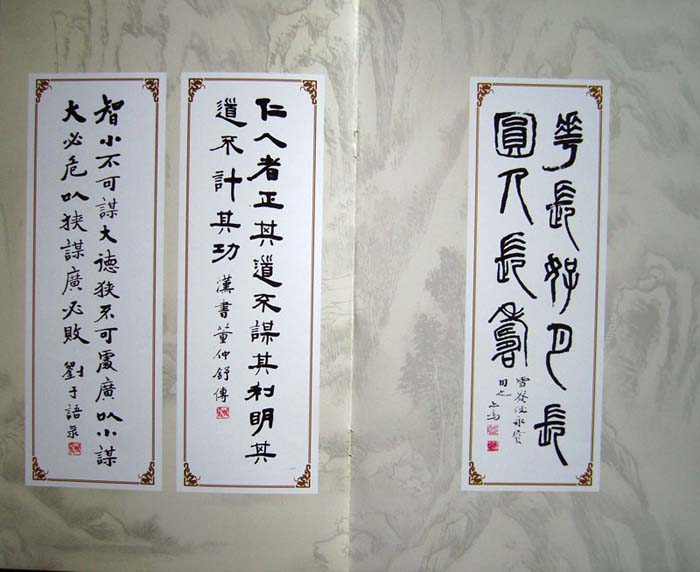 華長好月長
圓人長壽
仁人者正其道不謀其利明其
道不計其功
漢書董仲舒傳
智小不可謀大德狹不可處廣以小謀
大必危以狹謀廣必敗
劉子語录